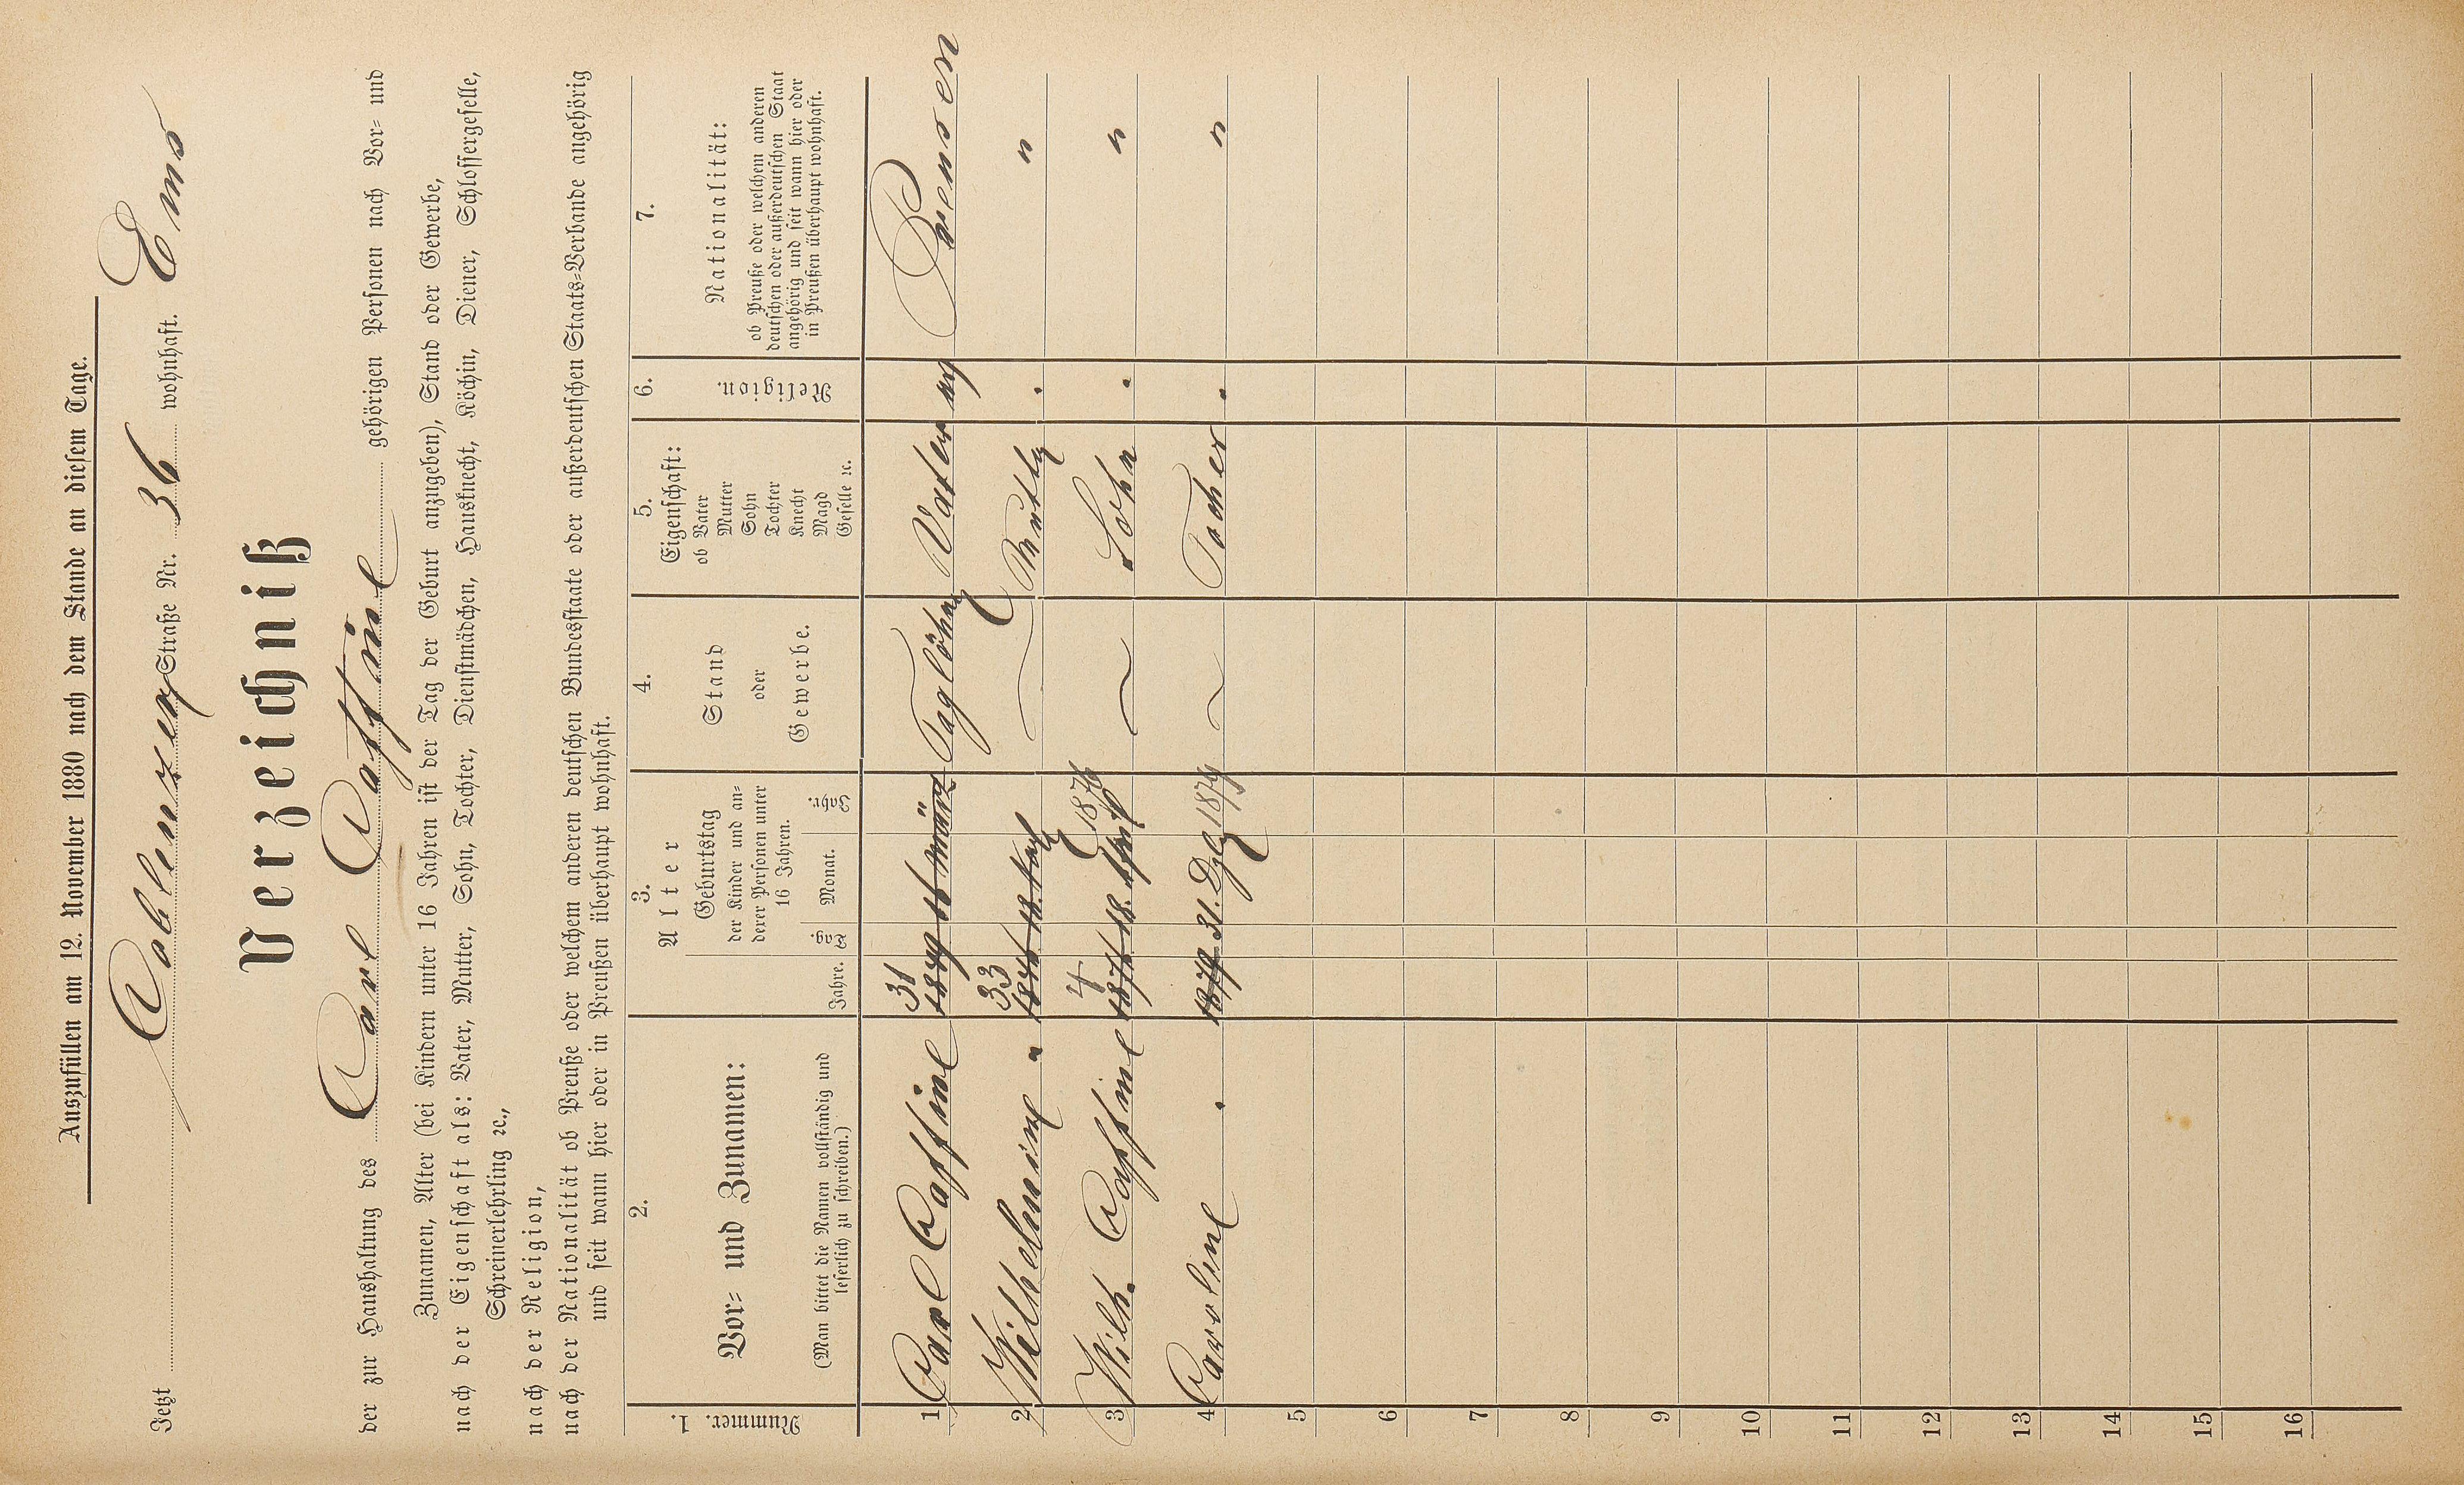 Auszufüllen am 12. November 1880 nach dem Stande an diesem Tage.
Jetzt Coblenzerstraße Nr. 36 wohnhaft. Ems
Verzeichniß
der zur Haushaltung des Carl Caffine gehörigen Personen nach Vor- und
Zunamen, Alter (bei Kindern unter 16 Jahren ist der Tag der Geburt anzugeben), Stand oder Gewerbe,
nach der Eigenschaft als: Vater, Mutter, Sohn, Tochter, Dienstmädchen, Hausknecht, Köchin, Diener, Schlossergeselle,
Schreinerlehrling ꝛc.,
nach der Religion,
nach der Nationalität ob Preuße oder welchem anderen deutschen Bundesstaate oder außerdeutschen Staats-Verbande angehörig
und seit wann hier oder in Preußen überhaupt wohnhaft.
1. Nummer.
2.
Vor- und Zunamen:
(Man bittet die Namen vollständig und
leserlich zu schreiben.)
3.
Alter
Jahre.
Geburtstag
der Kinder und an-
derer Personen unter
16 Jahren.
Tag
Monat.
Jahr.
4.
Stand
oder
Gewerbe.
5.
Eigenschaft:
ob Vater
Mutter
Sohn
Tochter
Knecht
Magd
Geselle ꝛc.
6.
Religion.
7.
Nationalität:
ob Preuße oder welchem anderen
deutschen oder außerdeutschen Staat
angehörig und seit wann hier oder
in Preußen überhaupt wohnhaft.
1 Carl Caffine 31 1849 16 März Taglöhner Vater Preusen
2 Wilhelmine " 33 18. Mutter " "
3 Wilh. Caffine 4 1876 18. April 1876 Sohn " "
4 Caroline " 1879 31. Dez 1879 Tocher " "
5
6
7
8
9
10
11
12
13
14
15
16